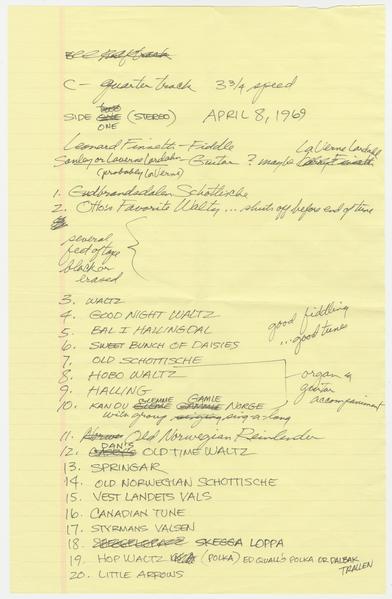 C - quarter track 3 3/4 speed
SIDE ONE (STEREO) APRIL 8, 1969
Leonard Finseth - Fiddle LaVerne Lardahl
Stanley or Laverne Lardahl - Guitar ? maybe
(probably LaVerne)
1. Gudbrandsdalen Schottische
2. Otto's Favorite Waltz ... shuts off before end of tune
several
feet of tape
blank or
erased
3. WALTZ
4. GOOD NIGHT WALTZ
good fiddling
... good tunes
5. BAL I HALLINGDAL
6. SWEET BUNCH OF DAISIES
7. OLD SCHOTTISCHE
8. HOBO WALTZ
organ &
guitar
accompaniment
9. HALLING
10. KAN DU GLEMME GAMLE NORGE
with group sing-a-long
11. Old Norwegian Reinlender
12. DAN'S OLD TIME WALTZ
13. SPRINGAR
14. OLD NORWEGIAN SCHOTTISCHE
15. VEST LANDETS VALS
16. CANADIAN TUNE
17. STYRMANS VALSEN
18. SKEGGA LOPPA
19. HOP WALTZ (POLKA) ED QUALL'S POLKA OR DALBAK
TRALLEN
20. LITTLE ARROWS